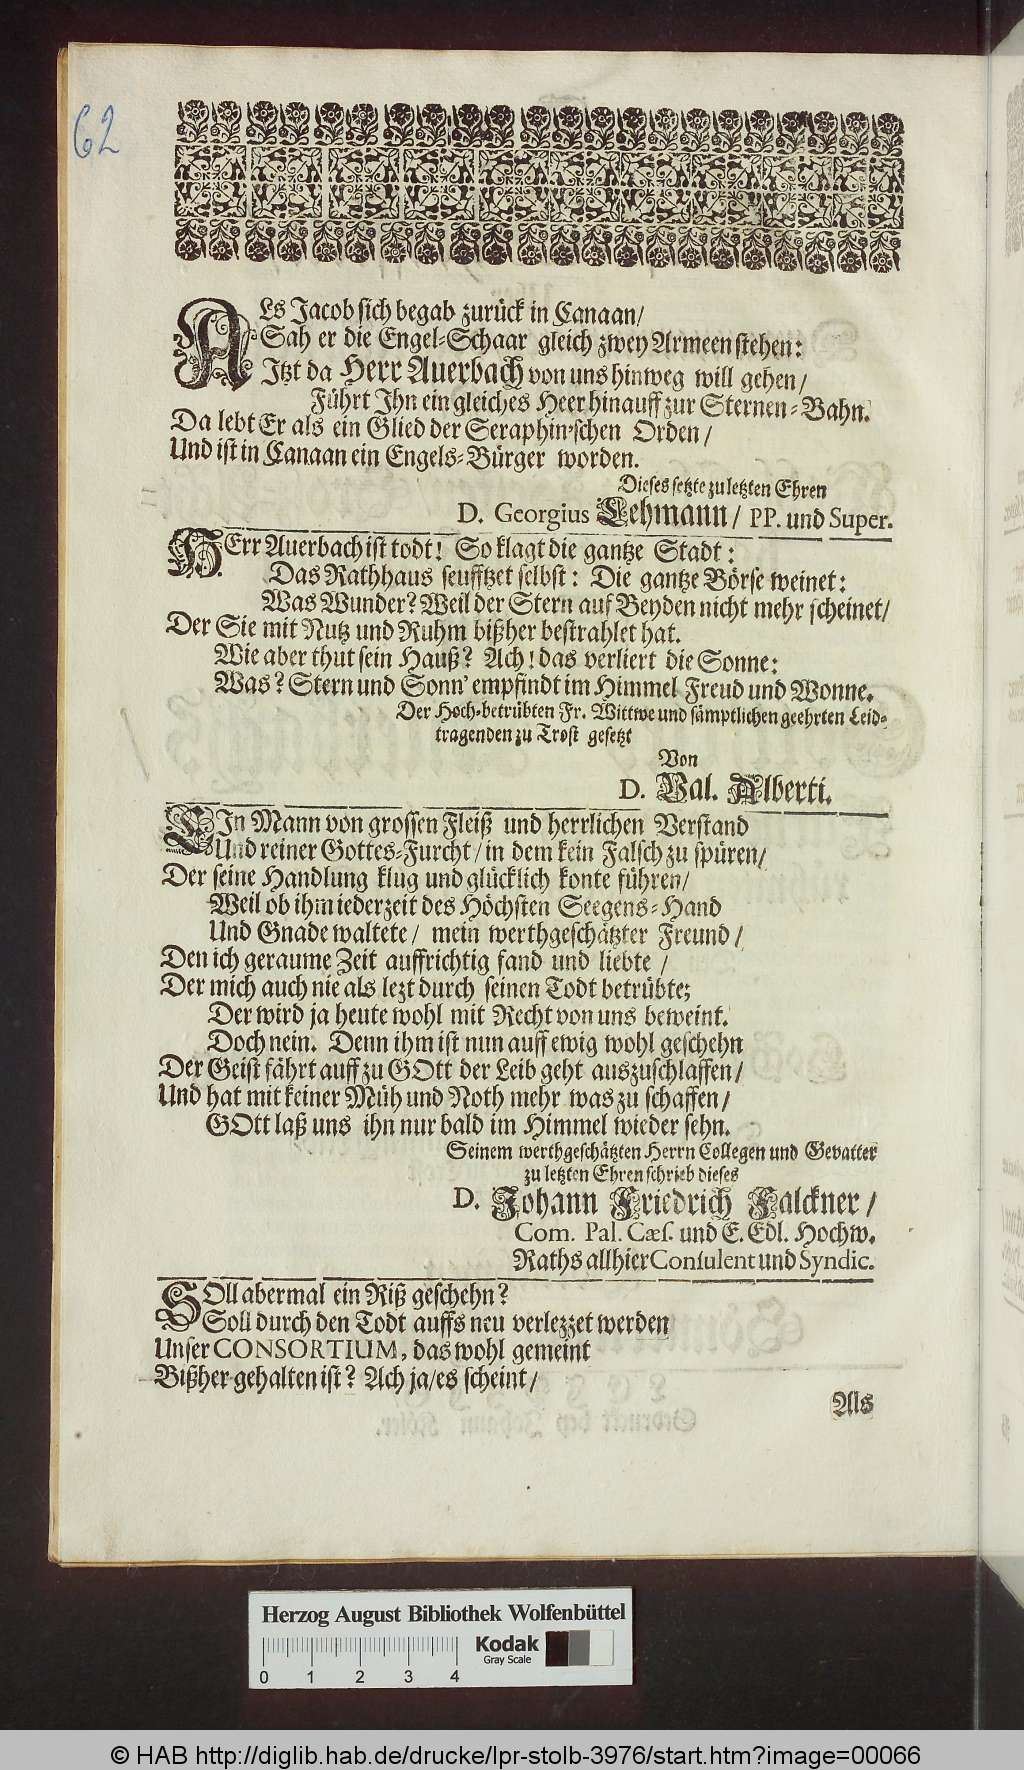 62
ALs Jacob sich begab zurück in Canaan/
Sah er die Engel-Schaar gleich zwey Armeen stehen:
Itzt da Herr Auerbach von uns hinweg will gehen/
Führt Ihn ein gleiches Heer hinauff zur Sternen-Bahn.
Da lebt Er als ein Glied der Seraphin'schen Orden/
Und ist in Canaan ein Engels-Bürger worden.
Dieses setzte zu letzten Ehren
D. Georgius Lehmann/ PP. und Super.
HErr Auerbach ist todt! So klagt die gantze Stadt:
Das Rathhaus seufftzet selbst: Die gantze Börse weinet:
Was Wunder? Weil der Stern auf Beyden nicht mehr scheinet/
Der Sie mit Nutz und Ruhm bißher bestrahlet hat.
Wie aber thut sein Hauß? Ach! das verliert die Sonne:
Was? Stern und Sonn' empfindt im Himmel Freud und Wonne.
Der Hoch-betrübten Fr. Wittwe und sämptlichen geehrten Leid-
tragenden zu Trost gesetzt
Von
D. Val. Alberti.
EIn Mann von grossen Fleiß und herrlichen Verstand
Und reiner Gottes-Furcht/ in dem kein Falsch zu spüren/
Der seine Handlung klug und glücklich konte führen/
Weil ob ihm iederzeit des Höchsten Seegens-Hand
Und Gnade waltete/ mein werthgeschätzter Freund/
Den ich geraume Zeit auffrichtig fand und liebte/
Der mich auch nie als lezt durch seinen Todt betrübte;
Der wird ja heute wohl mit Recht von uns beweint.
Doch nein. Denn ihm ist nun auff ewig wohl geschehn
Der Geist fährt auff zu GOtt der Leib geht auszuschlaffen/
Und hat mit keiner Müh und Noth mehr was zu schaffen/
GOtt laß uns ihn nur bald im Himmel wieder sehn.
Seinem werthgeschätzten Herrn Collegen und Gevatter
zu letzten Ehren schrieb dieses
D. Johann Friedrich Falckner/
Com. Pal. Cæs. und E. Edl. Hochw.
Raths allhier Consulent und Syndic.
SOll abermal ein Riß geschehn?
Soll durch den Todt auffs neu verlezzet werden
Unser CONSORTIUM, das wohl gemeint
Bißher gehalten ist? Ach ja/ es scheint/
Als
Herzog August Bibliothek Wolfenbüttel
Kodak
Gray Scale
0 1 2 3 4
© HAB http://diglib.hab.de/drucke/lpr-stolb-3976/start.htm?image=00066